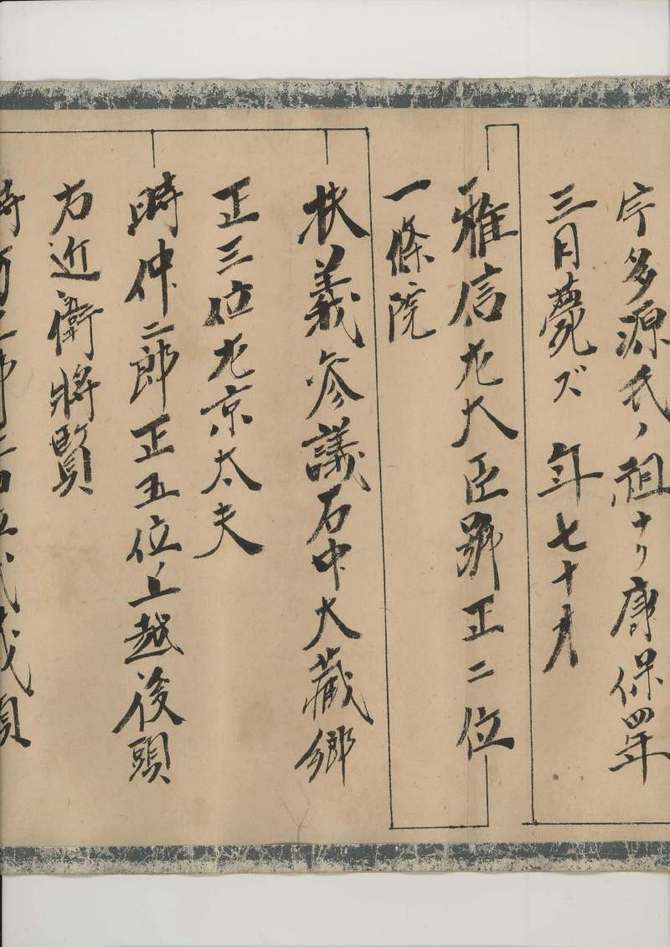 宇多源氏ノ祖ナリ康保四年
三月薨ズ年七十才
雅信左大臣號正二位
一條院
扶義参議右中大藏卿
正三位左京太夫
時仲二郎正五位上越後頭
右近衛將監